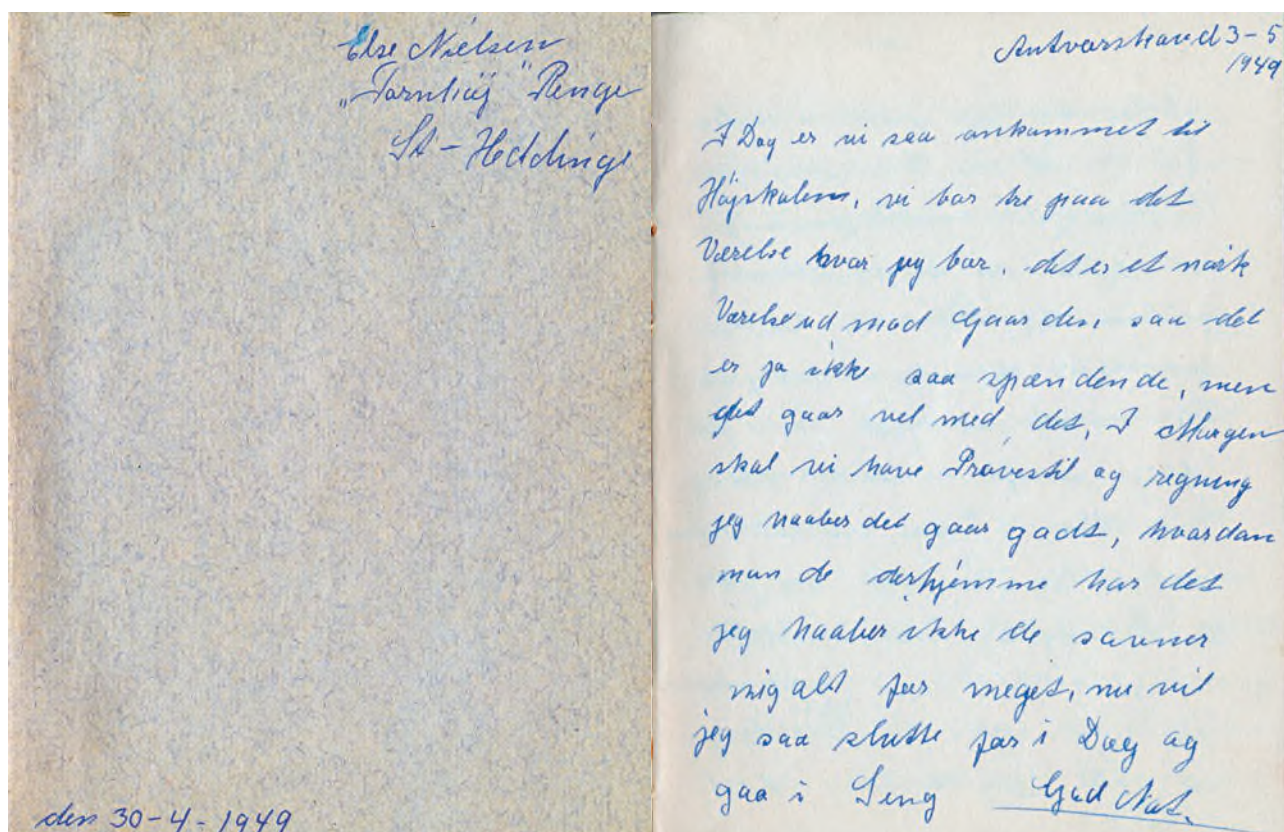 Else Nielsen
"Tornhøj" Renge
St - Heddinge
den 30-4-1949
Antvorskovd 3-5
1949
I Dag er vi saa ankommet til
Højskolem, vi bor tre paa det
Værelse hvor jeg bor, det er et mørk
Værelse ud mod Gaarden, saa det
er ja ikke saa spændende, men
det gaar vel med det, I Morgen
skal vi have Prøvestil og regning
jeg haaber det gaar godt, hvordan
mon de derhjemme har det
jeg haaber ikke de savner
mig alt for meget, nu vil
jeg saa slutte for i Dag og
gaa i Seng God Nat.